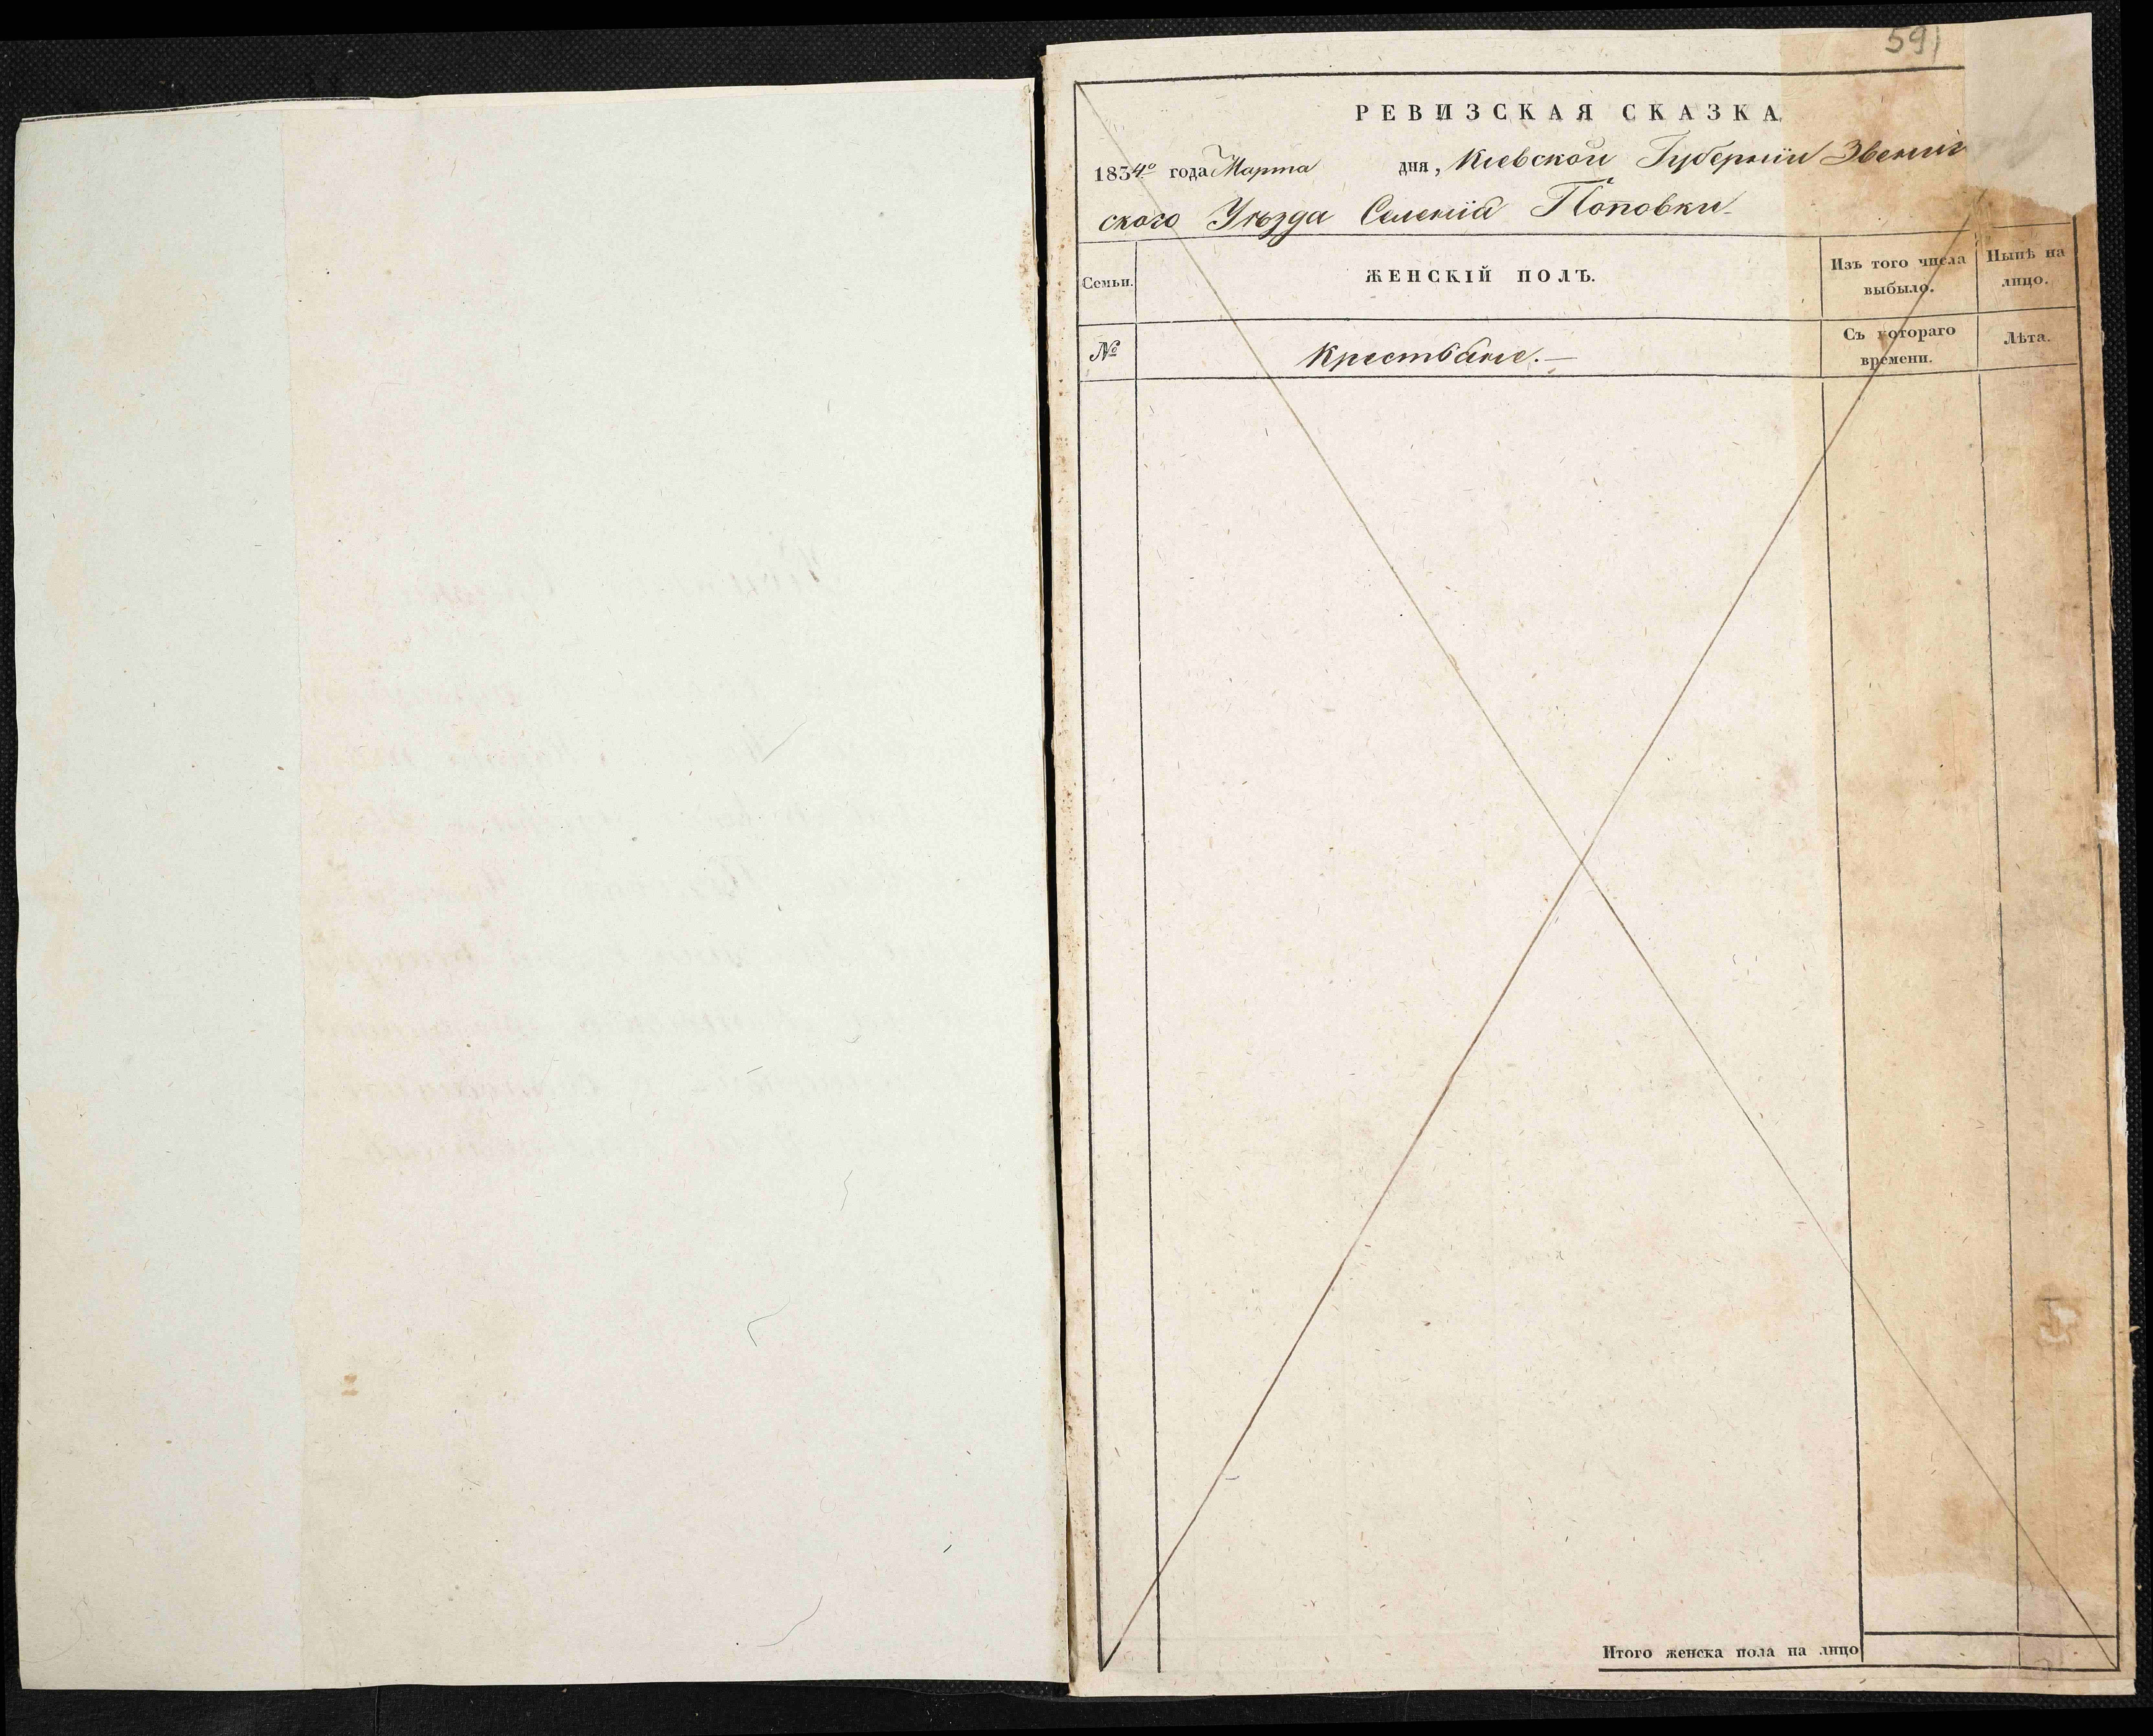 591
РЕВИЗСКАЯ СКАЗКА
1834го года Марта дня, Кіевской Губерніи Звениг
ского Уѣзда Селенія Поповки
Семьи.
ЖЕНСКІЙ ПОЛЪ.
Изъ того числа выбыло.
Нынѣ на лицо.
№
Крестьяне.—
Съ котораго времени.
Лѣта.
Итого женска пола на лицо